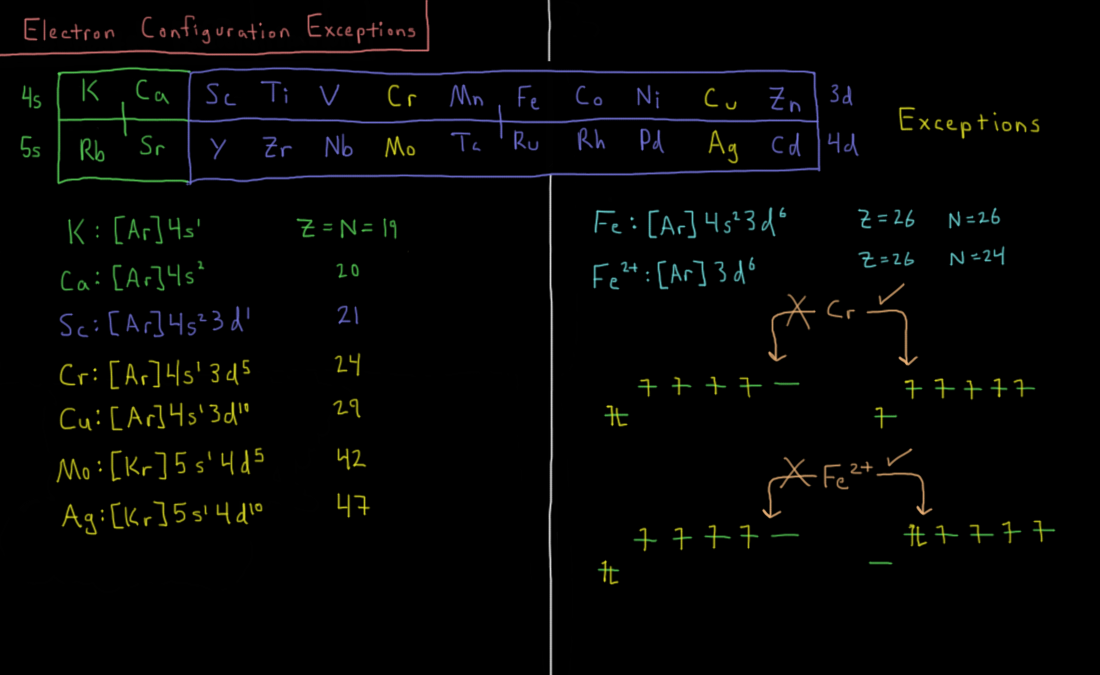 Electron Configuration Exceptions
4s K Ca Sc Ti V Cr Mn Fe Co Ni Cu Zn 3d
5s Rb Sr Y Zr Nb Mo Tc Ru Rh Pd Ag Cd 4d
Exceptions
K: [Ar]4s¹ Z=N=19
Ca: [Ar]4s² 20
Sc: [Ar]4s²3d¹ 21
Cr: [Ar]4s¹3d⁵ 24
Cu: [Ar]4s¹3d¹⁰ 29
Mo: [Kr]5s¹4d⁵ 42
Ag: [Kr]5s¹4d¹⁰ 47
Fe: [Ar]4s²3d⁶ Z=26 N=26
Fe²⁺: [Ar]3d⁶ Z=26 N=24
Cr
Fe²⁺